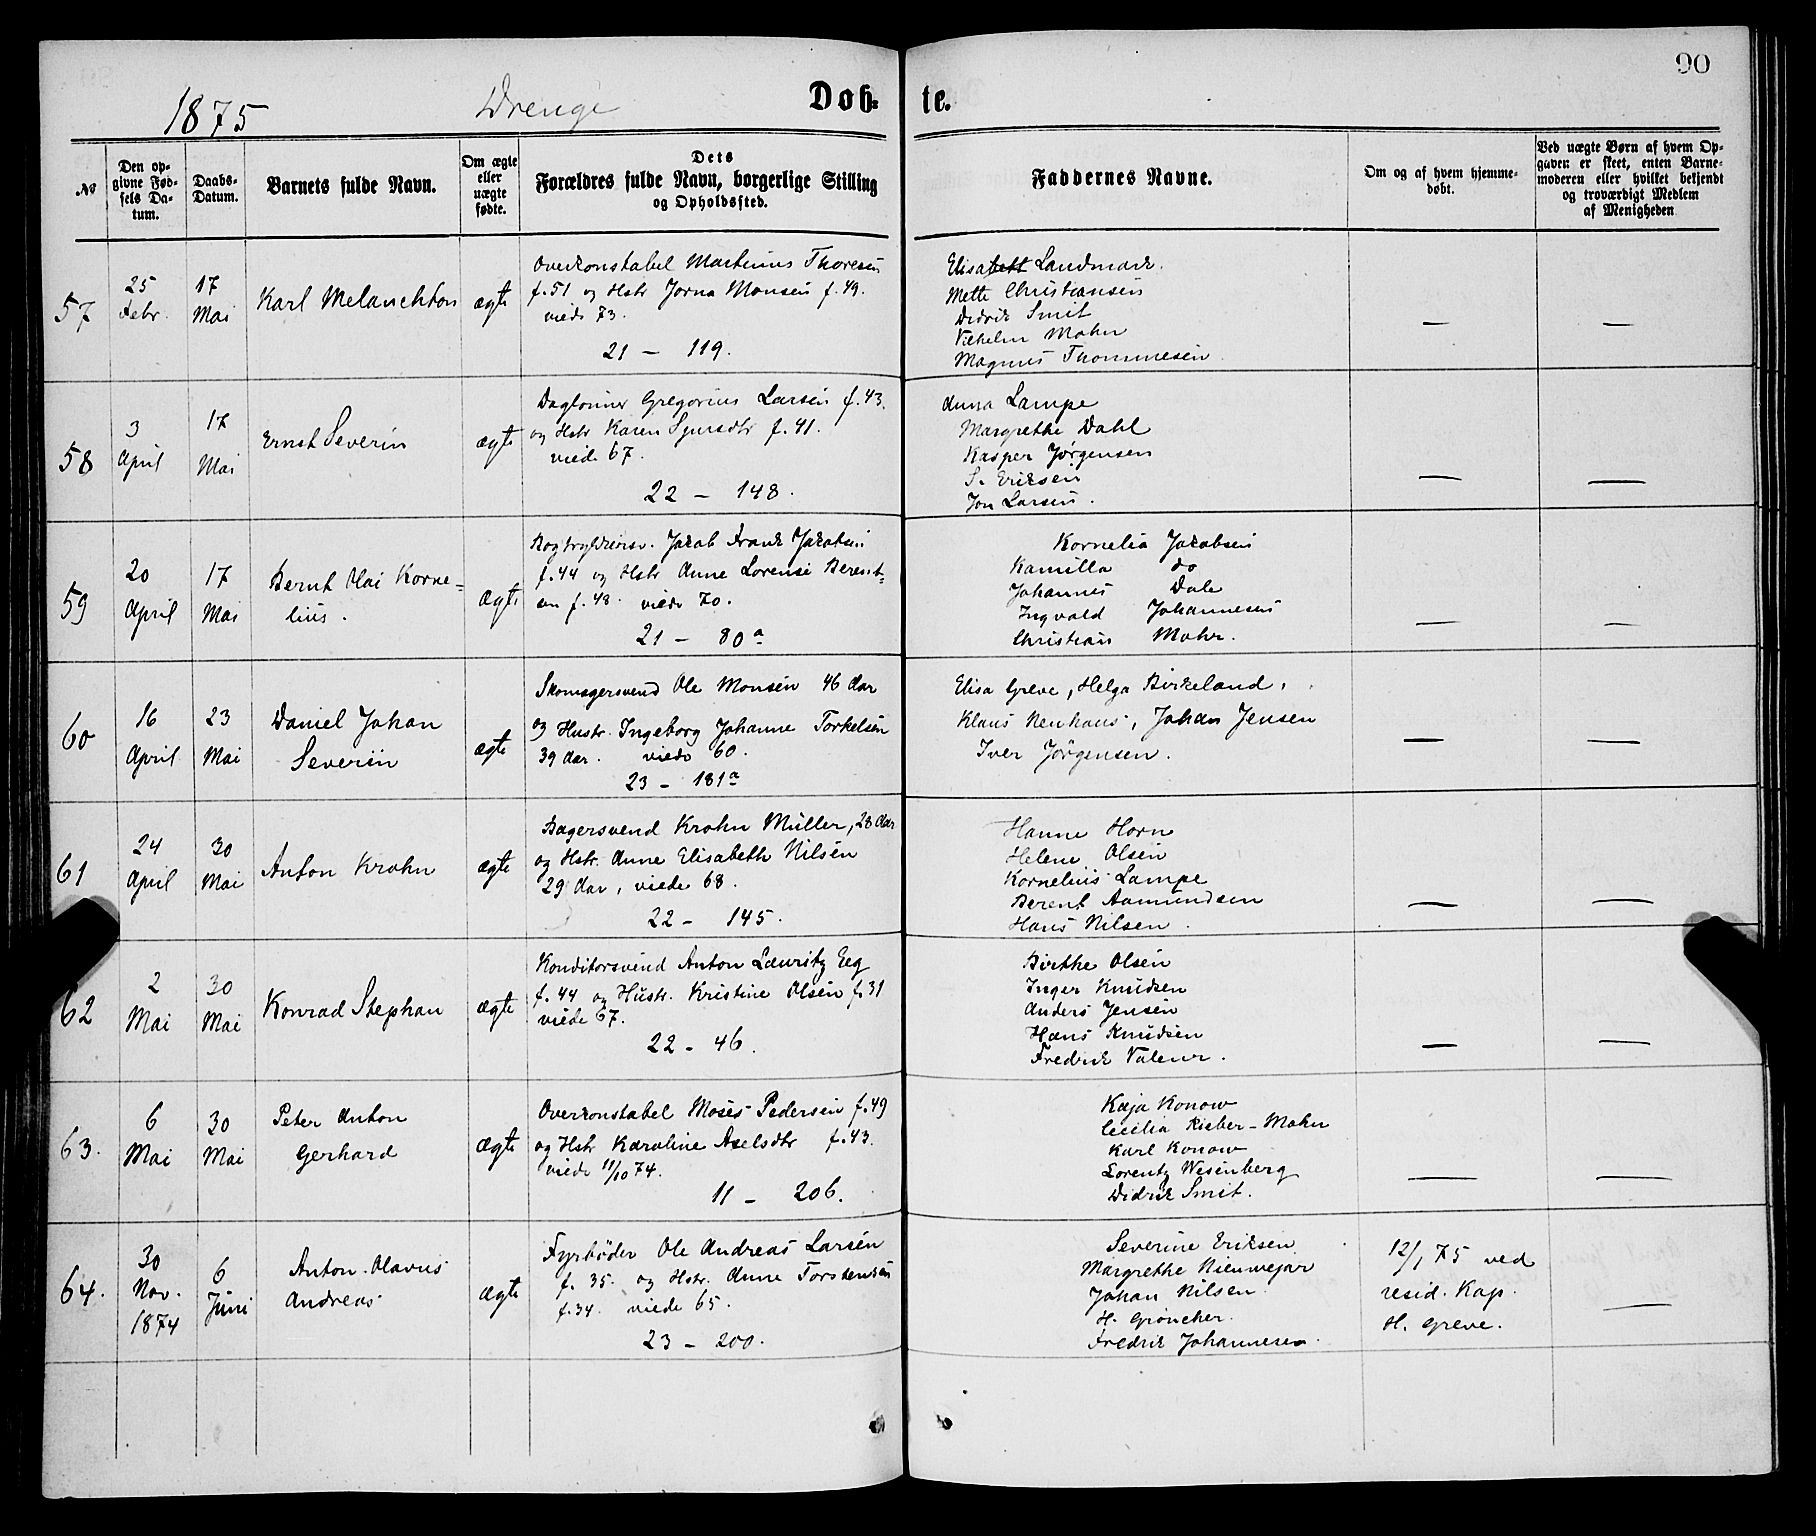 90
1875 Drenge Døb- te.
No
Den op-
givne Fød-
sels Da-
tum.
Daabs-
Datum.
Barnets fulde Navn.
Om ægte
eller
uægte
fødte.
Dets
Forældres fulde Navn, borgerlige Stilling
og Opholdssted.
Faddernes Navne.
Om og af hvem hjemme-
døbt.
Ved uægte Børn af hvem Op-
gaven er skeet, enten Barne-
moderen eller hvilket bekjendt
og troværdigt Medlem
af Menigheden
57
25
Febr.
17
Mai
Karl Melanchton
ægte
Overkonstabel Martinus Thoresen
f. 51 og Hstr Jorna Monsen f. 49.
viede 73.
21 — 119.
Elisabett Landmark.
Mette Christiansen
Didrik Smit
Vilhelm Mohn
Magnus Thommesen
—
—
58
3
April
17
Mai
Ernst Severin
ægte
Daglønner Gregorius Larsen f. 43.
og Hstr Karen Sjursdtr f. 41.
viede 67.
22 — 148.
Anna Lampe
Margrethe Dahl
Kasper Jørgensen
S. Eriksen
Jon Larsen.
—
—
59
20
April
17
Mai
Bernt Olai Korne-
lius.
ægte
Jakob Frank Jakobsen
f. 44 og Hstr Anne Lorense Berent-
sen f. 48. viede 70.
21 — 80 a
Kornelia Jakobsen
Kamilla do
Johannes Dale
Ingvald Johannesen
Christian Mohr.
—
—
60
16
April
23
Mai
Daniel Johan
Severin
ægte
Skomagersvend Ole Monsen 46 Aar
og Hustr. Ingeborg Johanne Torkelsen
39 Aar. viede 60.
23 — 181 a
Elisa Greve, Helga Birkeland,
Klaus Neuhaus, Johan Jensen
Iver Jörgensen.
—
—
61
24
April
30
Mai
Anton Krohn
ægte
Bagersvend Krohn Müller, 28 Aar
og Hstr. Anne Elisabeth Nilsen
29 Aar, viede 68.
22 — 145.
Hanne Horn
Helene Olsen
Kornelius Lampe
Berent Aamundsen
Hans Nilsen.
—
—
62
2
Mai
30
Mai
Konrad Stephan
ægte
Konditorsvend Anton Lauritz Eeg
f. 44 og Hustr. Kristine Olsen f. 31
viede 67.
22 - 46.
Birthe Olsen
Inger Knudsen
Anders Jensen
Hans Knudsen
Fredrik Valeur.
—
—
63.
6
Mai
30
Mai
Peter Anton
Gerhard
ægte
Overkonstabel Moses Pedersen f. 49
og Hstr Karoline Axelsdtr f. 43.
viede 11/10 74.
11 — 206.
Kaja Konow
Cecilia Rieber-Mohn
Karl Konow
Lorentz Wesenberg
Didrik Smit.
—
—
64.
30
Nov.
1874
6
Juni
Anton Olavus
Andreas
ægte
Fyrbøder Ole Andreas Larsen
f. 35. og Hstr. Anne Torstensen
f. 34. viede 65.
23 — 200.
Severine Eriksen
Margrethe Nienmejer
Johan Nilsen
H. Grøncher.
Fredrik Johannesen.
12/1 75 ved
resid. Kap.
H. Greve.
—